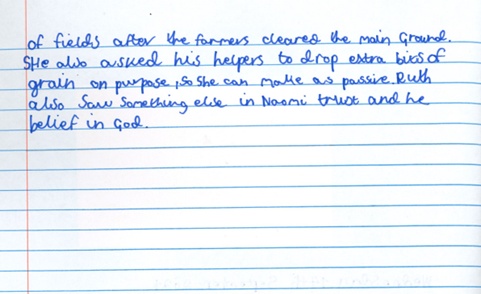 of fields after the farmers cleared the main Ground.
SHe also asked his helpers to drop extra bits of
grain on purpose, so She can make as possive. Ruth
also Saw Something else in Naomi trust and he
belief in God.